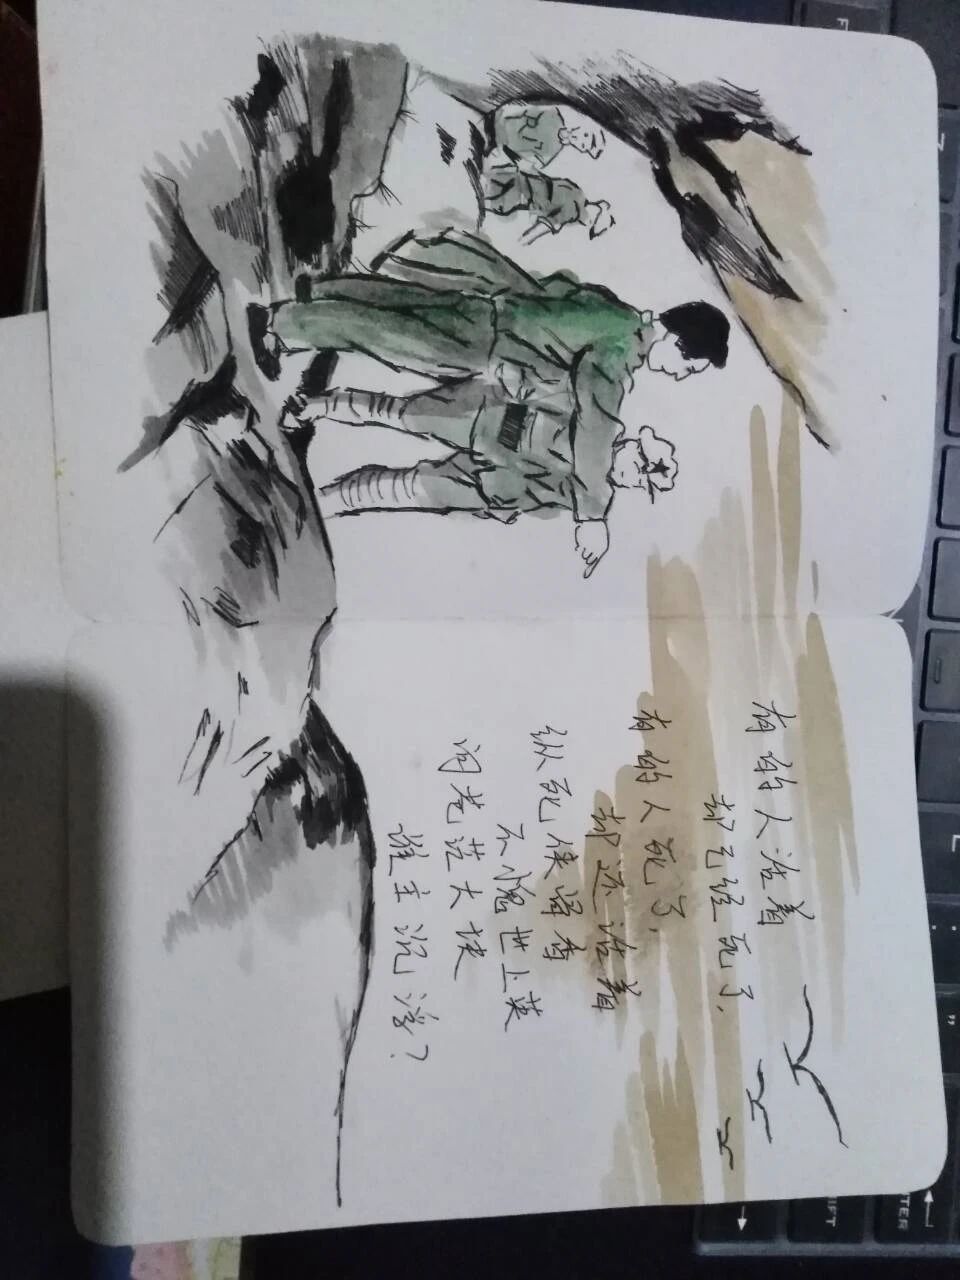 有的人活着
却已经死了.
有的人死了.
却还活着
纵死侠骨香
不愧世上英
问苍茫大地
谁主沉浮?